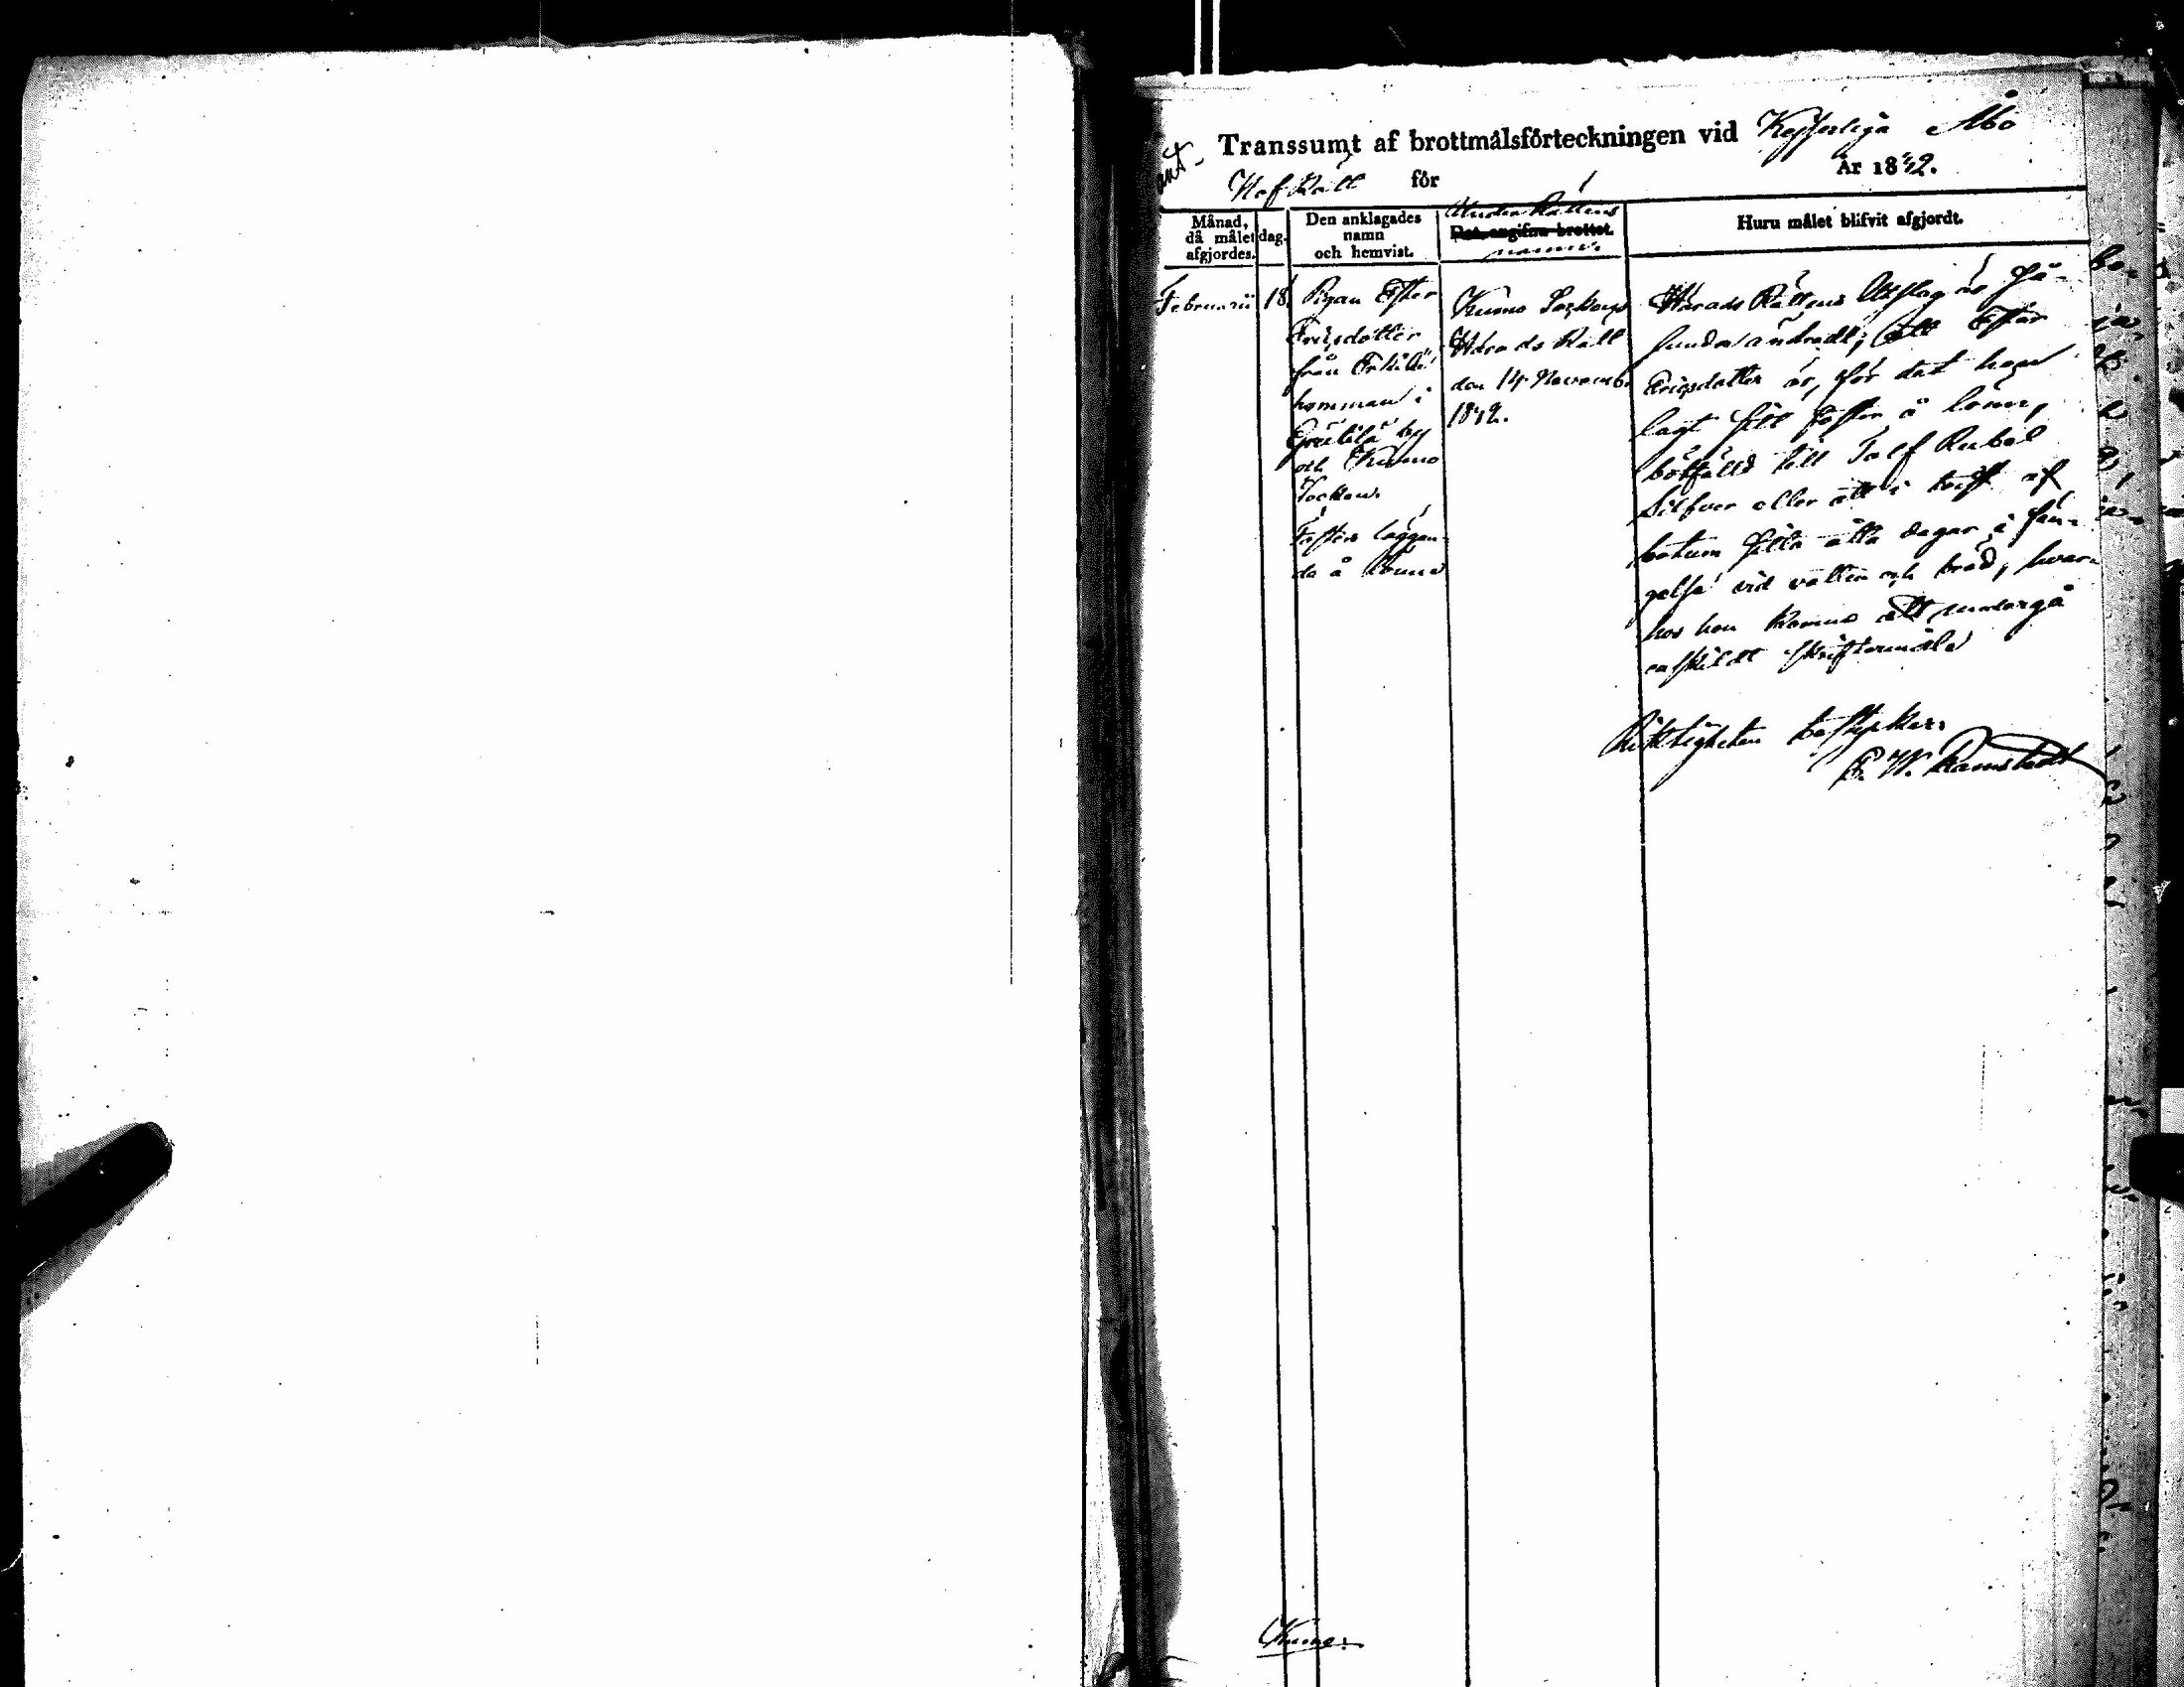 Transsumt af brottmålsförteckningen vid Kejserliga Åbo
Hof Rätt för År 1842.
Månad,
då målet
afgjordes.
dag.
Den anklagades
namn
och hemvist.
Under Rättens
Det angifna brottet.
namn.
Huru målet blifvit afgjordt.
Februarii
18
Pigan Ester
Ericsdotter
från Erkilä
hemman i
by
och Kumo
Socken.
Fosters läggan-
de å lönn
Kumo Sockens
Härads Rätt
den 14 Novemb.
1842.
Härads Rättens Utslag är så-
lunda ändradt; att Ester
Ericsdotter är, för det hon
lagt sitt foster å lönn,
bötfälld till Tolf Rubel
Silfver eller att i brist af
botum sitta åtta dagar i fän-
gelse vid vatten och bröd, hvar-
hos hon kommer att undergå
enskildt skriftermål
Riktigheten bestyrker:
W. Ramstedt
Kumo.